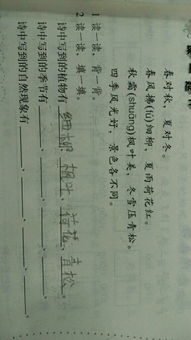 春对秋,夏对冬。
春风拂(fú)细柳,夏雨荷花红。
秋霜(shuāng)枫叶美,冬雪压青松。
四季风光好,景色各不同。
1 读一读,背一背。
2 读一读,填一填。
诗中写到的植物有 细柳、枫叶、荷花、青松。
诗中写到的季节有 、 、 、 。
诗中写到的自然现象有 、 、 、 。